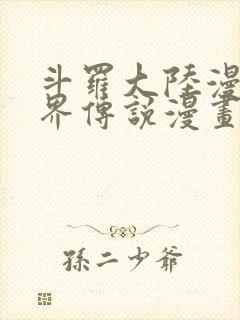 斗羅大陸漫
界傳說漫畫
孫二少爺